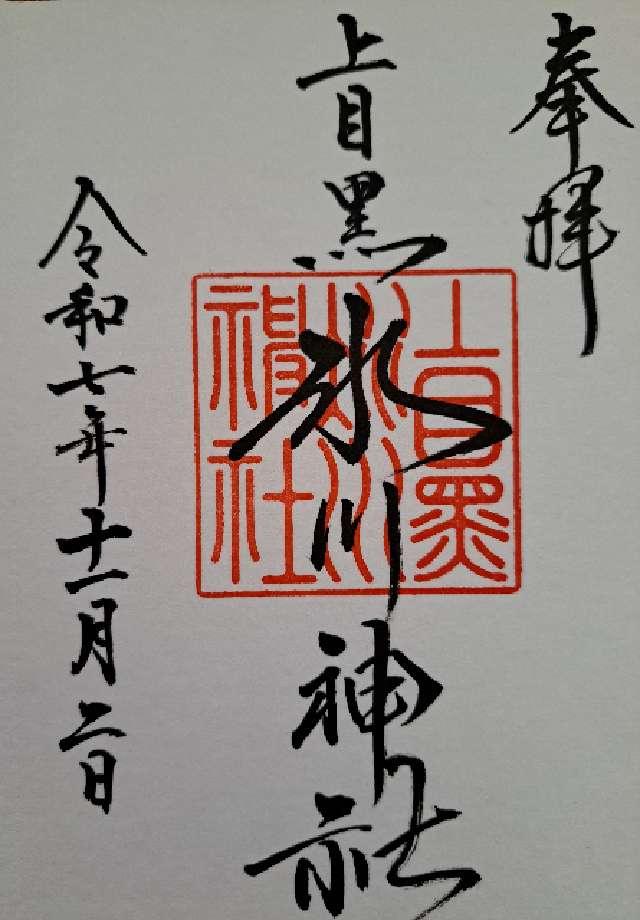 奉拝
上目黒氷川神社
上目黒氷川神社
令和七年十一月二日